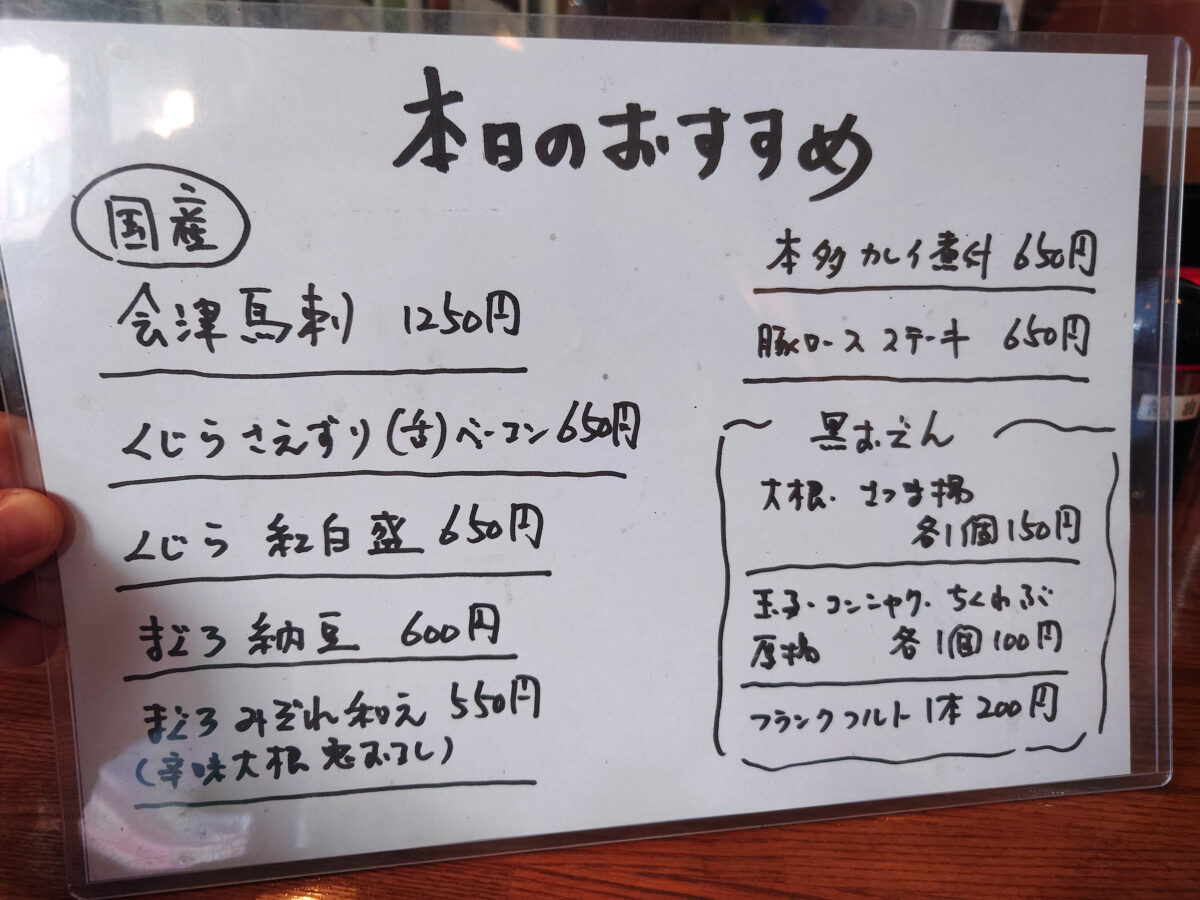 本日のおすすめ
国産
会津馬刺 1250円
くじらさえずり(舌)ベーコン 650円
くじら 紅白盛 650円
まぐろ納豆 600円
まぐろみぞれ和え 550円
(辛味大根 鬼おろし)
本多カレイ煮付 650円
豚ロースステーキ 650円
黒おでん
大根・さつま揚
各1個150円
玉子・コンニャク・ちくわぶ
厚揚 各1個100円
フランクフルト1本200円